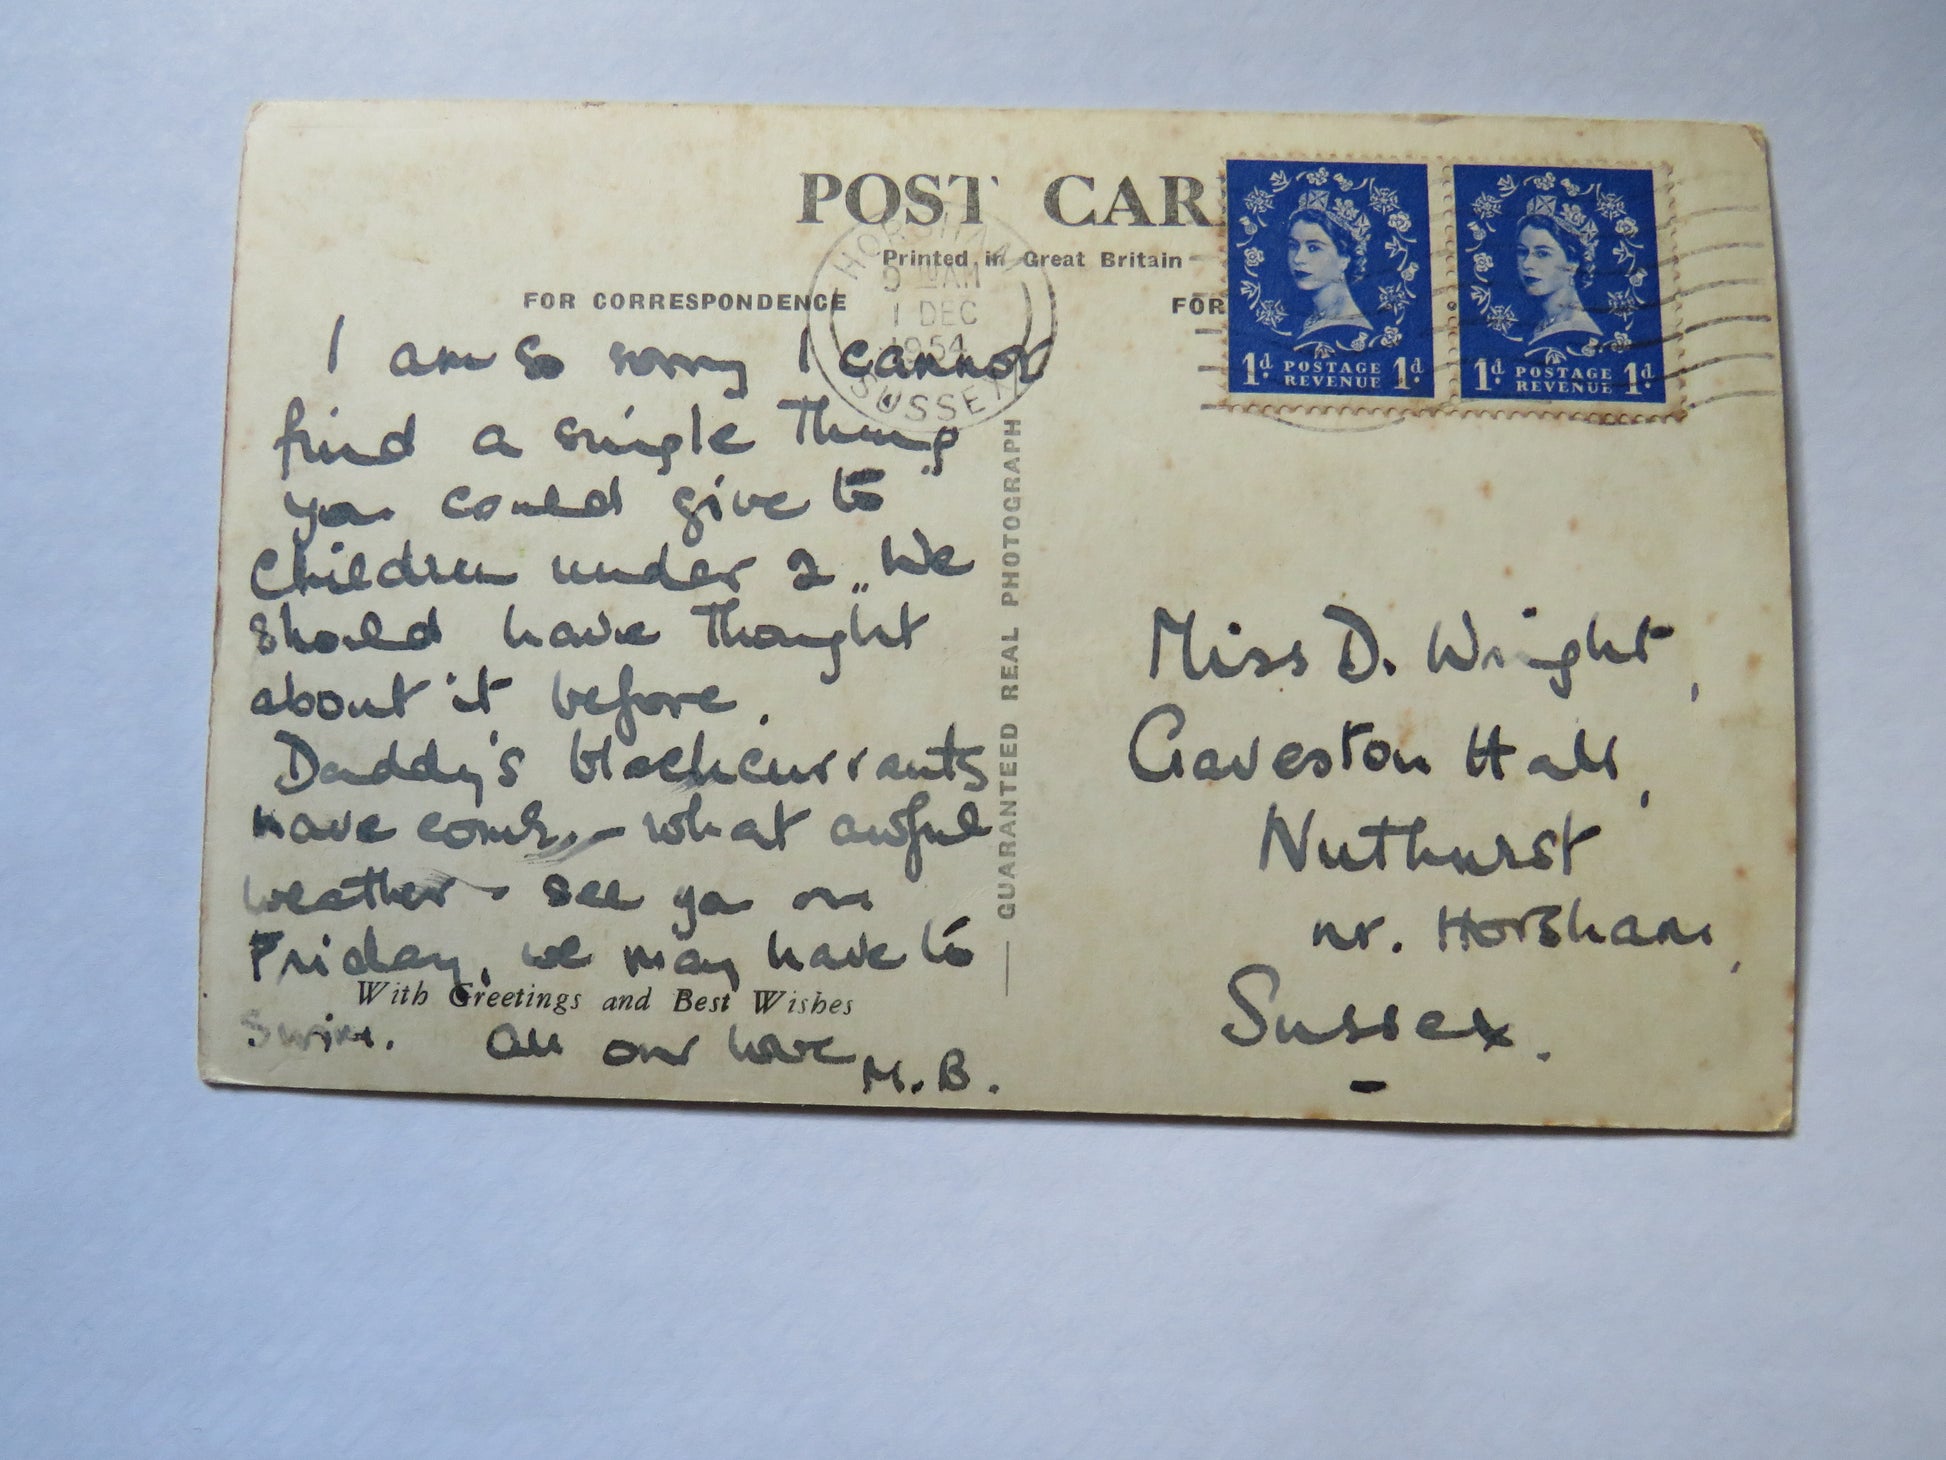 POST CAR
Printed in Great Britain
FOR CORRESPONDENCE
FOR
HORSHAM
9 AM
1 DEC
1954
SUSSEX
1d. POSTAGE REVENUE 1d.
1d. POSTAGE REVENUE 1d.
I am so sorry I cannot
find a single thing
you could give to
children under 2.. We
should have thought
about it before.
Daddy's blackcurrants
have come, - what awful
weather - see you on
Friday, we may have to
swim. All our love
M.B.
With Greetings and Best Wishes
GUARANTEED REAL PHOTOGRAPH
Miss D. Wright,
Gaveston Hall,
Nuthurst
nr. Horsham,
Sussex.